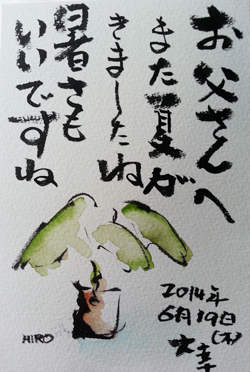 お父さんへ
また夏が
きましたね
暑さも
いいですね
2014年
6月19日
(木)
大幸
HIRO